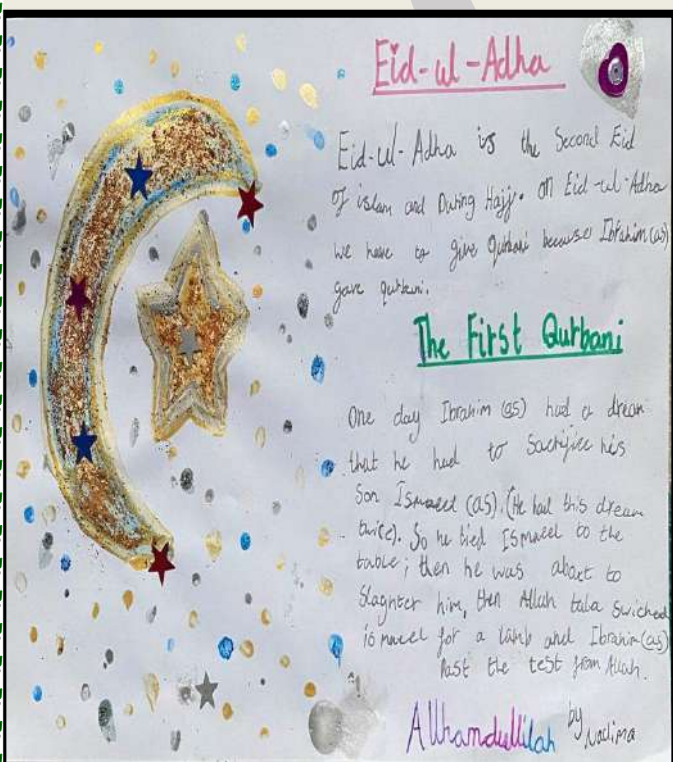 Eid-ul-Adha
Eid-ul-Adha is the Second Eid
of islam and During Hajj. on Eid-ul-Adha
we have to give Qurbani because Ibrahim (as)
gave qurbani.
The First Qurbani
One day Ibrahim (as) had a dream
that he had to Sacrifice his
Son Ismaeel (as). (He had this dream
twice). So he tied Ismaeel to the
table; then he was about to
Slaghter him, then Allah tala swiched
ismaeel for a lamb and Ibrahim (as)
Past the test from Allah.
Allhamdullilah by